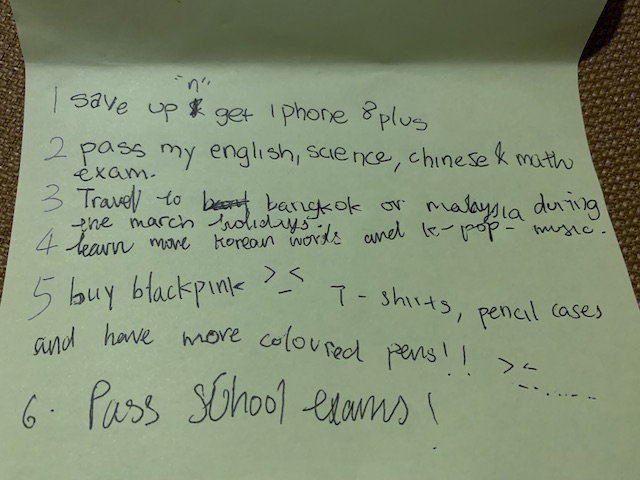 1 save up "n" get iphone 8plus
2 pass my english, science, chinese & math
exam.
3 Travel to bangkok or malaysia during
the march holidys.
4 learn more korean words and k-pop-music.
5 buy blackpink >_< T-shirts, pencil cases
and have more coloured pens!! >-<......
6. Pass school exams!